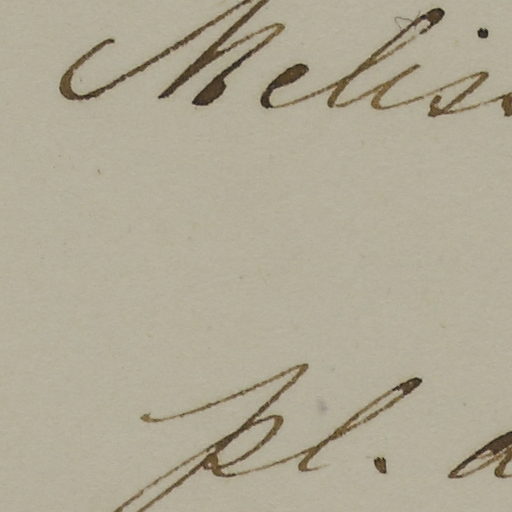 Melis
pl. a